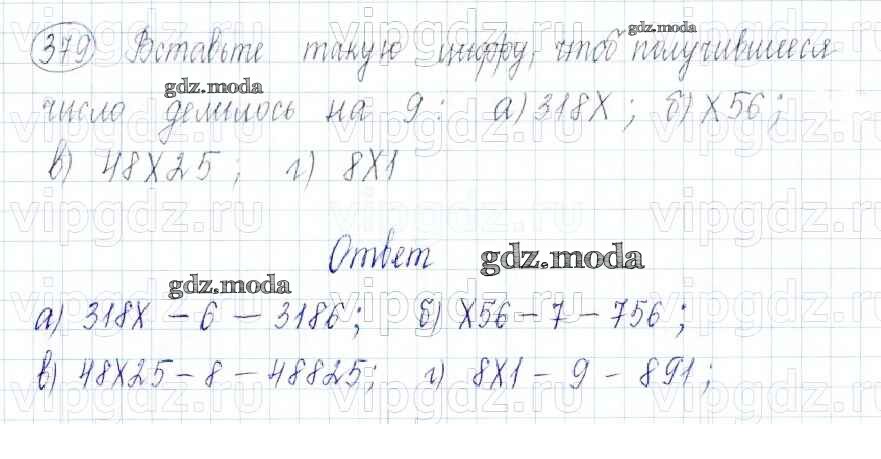 379 Вставьте такую цифру, чтоб получившееся
число делилось на 9: а) 318X; б) X56;
в) 48X25; г) 8X1
Ответ
а) 318X – 6 – 3186; б) X56 – 7 – 756;
в) 48X25 – 8 – 48825; г) 8X1 – 9 – 891;
gdz.moda
gdz.moda
gdz.moda
gdz.moda
vipgdz.ru